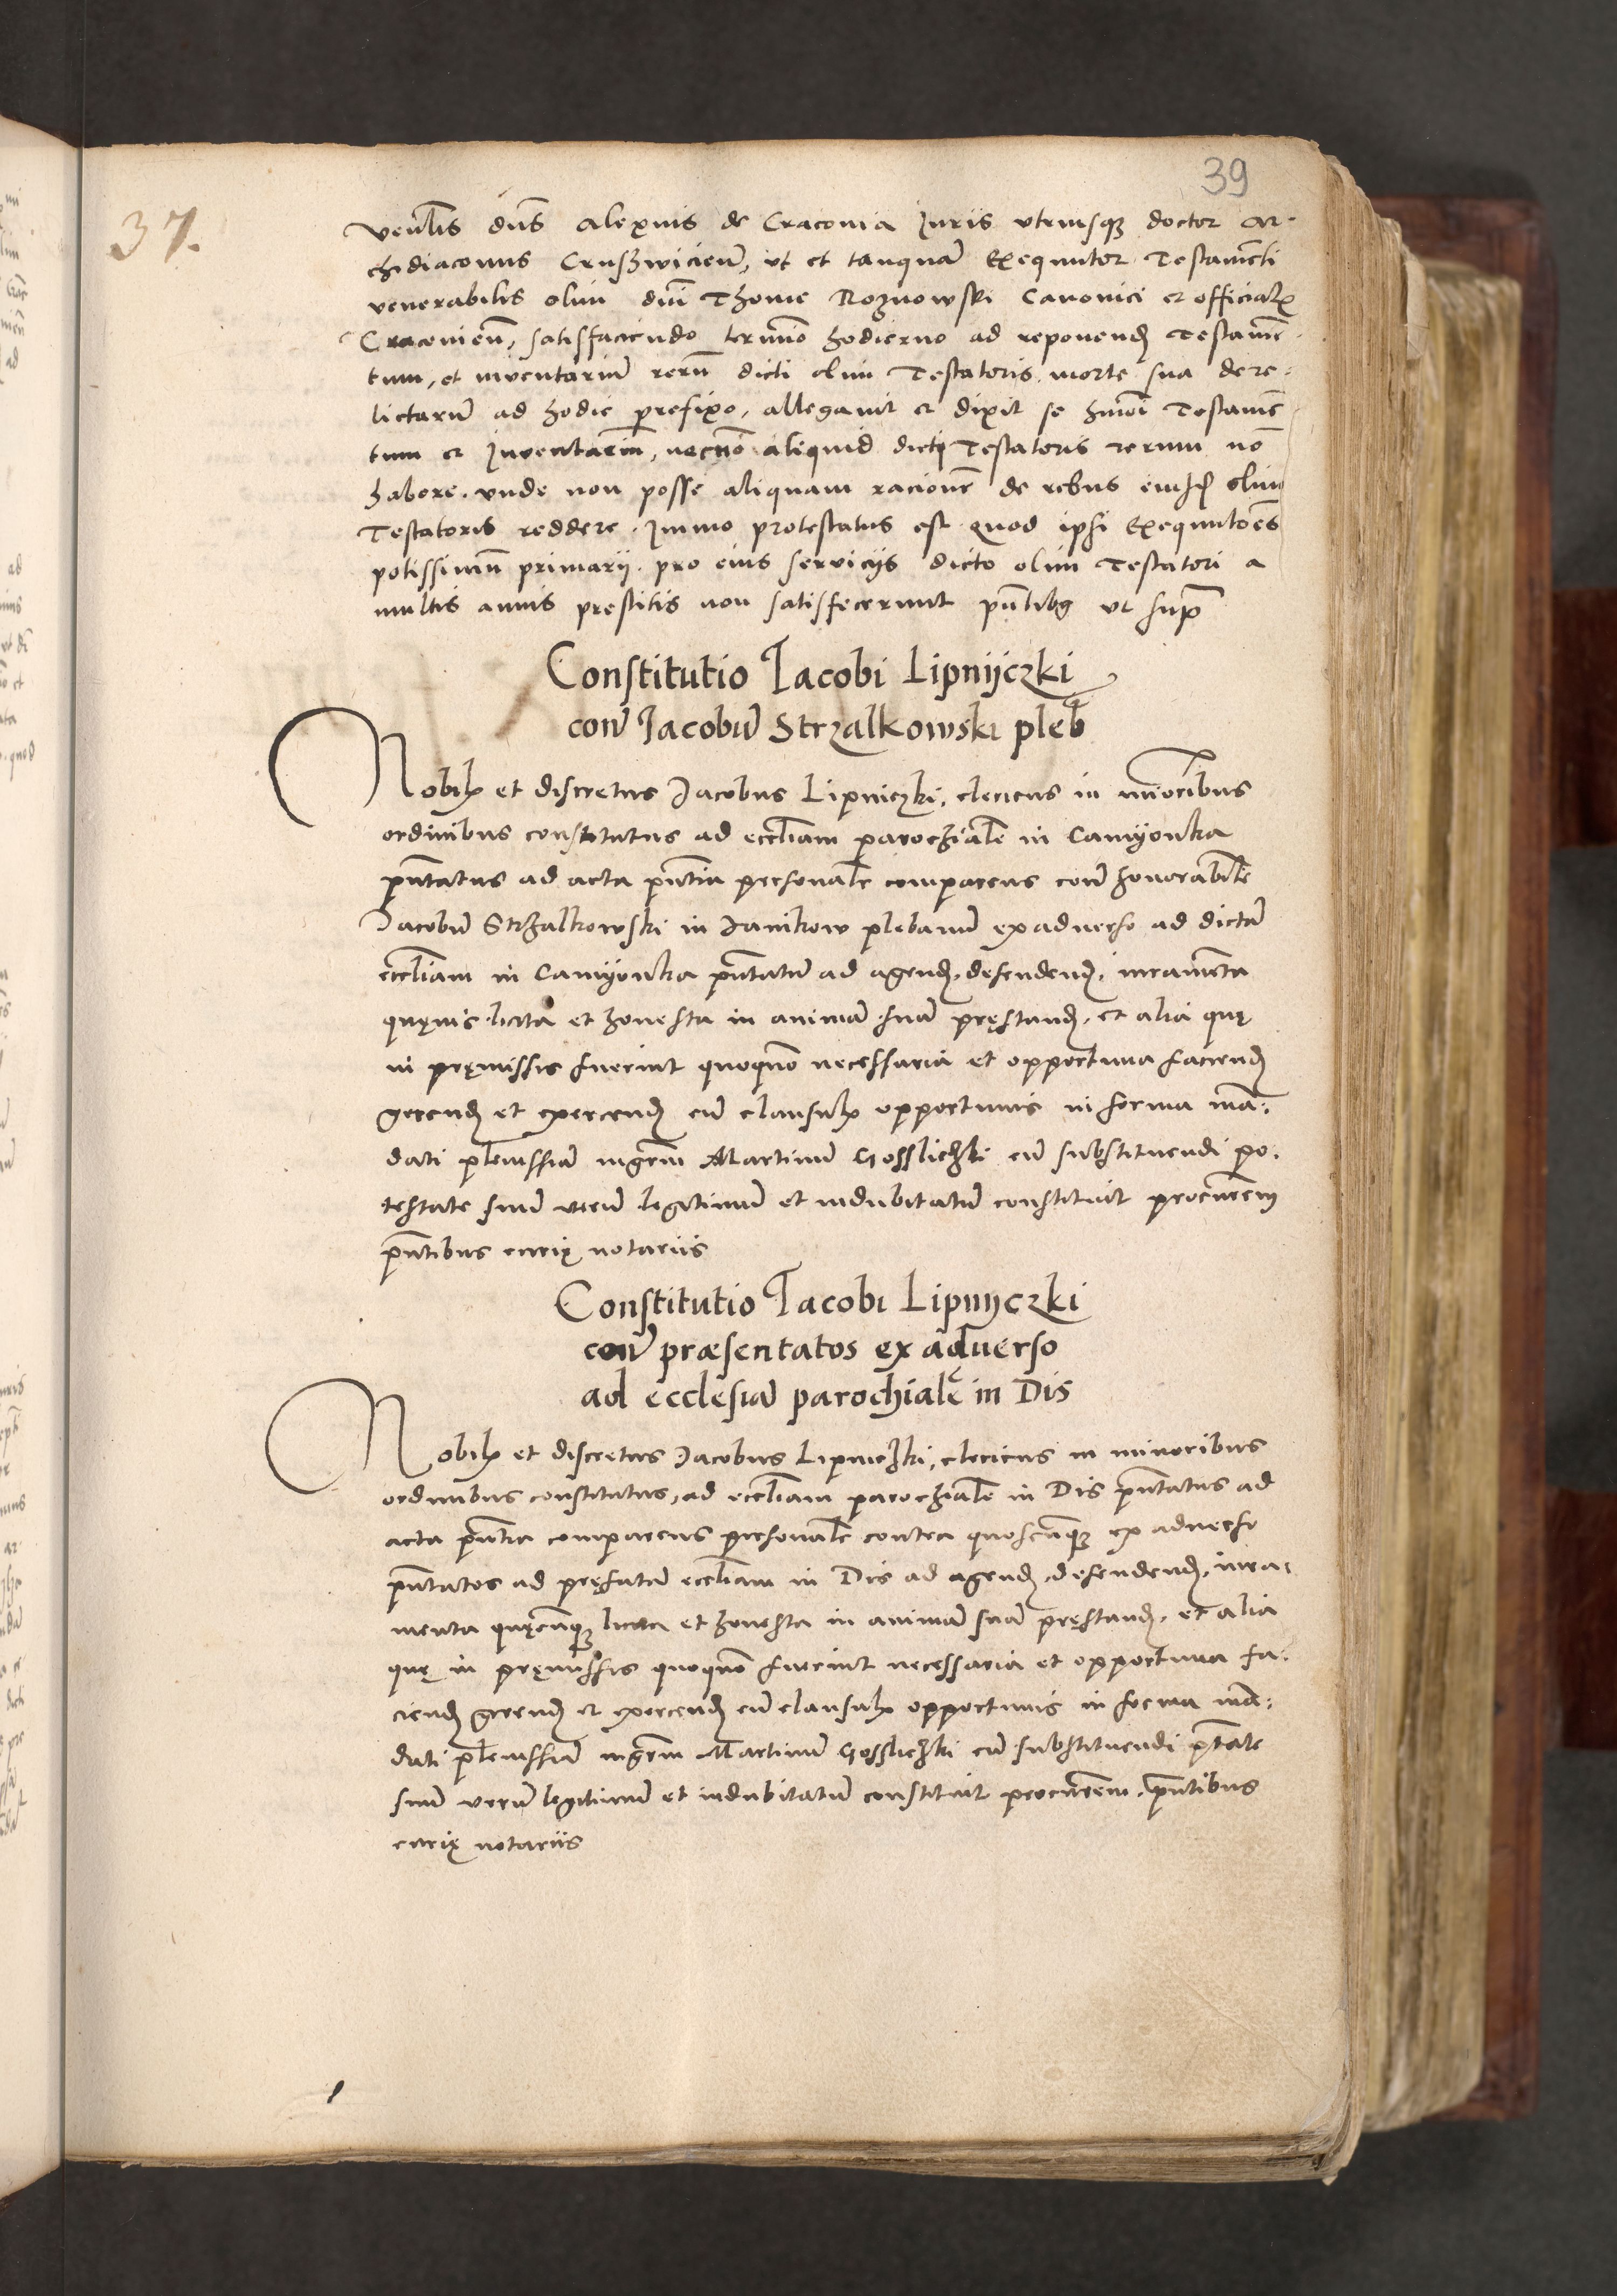 39
37.
venlis dns Alexius de Cracovia Iuris utriusq doctor Ar-
chidiaconus Cruszwicien, ut et tanquam Exequutor Testamenti
venerabilis olim dni Thome Roznowski Canonici et officialis
Cracovien, satisfaciendo termino hodierno ad reponend Testamen-
tum, et inventarium rerum dicti olim Testatoris morte sua dere-
lictarum ad hodie prefixo, allegavit et dixit se hmoi Testamen
tum et Inventarium, necno aliquid dicti Testatoris rerum non
habere. unde non posse aliquam racionem de rebus eiusd olim
Testatoris reddere. Immo protestatus est quod ipsi Exequutores
potissimum primarii pro eius serviciis dicto olim Testatori a
multis annis prestitis non satisfecerunt pntibq ut supra
Constitutio Iacobi Lipnijczki
con Iacobum Strzalkowski pleb
Nobilis et discretus Iacobus Lipniczki, clericus in minoribus
ordinibus constitutus ad eccliam parochialem in Camÿonka
pntatus ad acta pntia personale comparens con honorabilem
Iacobum Strzalkowski in Ianikow plebanum ex adverso ad dictam
eccliam in Camÿonka pntatum ad agend, defendend, iuramenta
quęvis licita et honesta in animam suam pręstand, et alia quę
in pręmissis fuerint quoquo necessaria et opportuna faciend
gerend et exercend cum clausulis opportunis in forma man-
dati plenissimi mgrm Martinum Gosslichzki cum substituendi po-
testate suum verum legitimum et indubitatum constituit procurem
pntibus curię notariis
Constitutio Iacobi Lipnijczki
con præsentatos ex adverso
ad ecclesiam parochialem in Dis
Nobilis et discretus Iacobus Lipniczki, clericus in minoribus
ordinibus constitutus, ad eccliam parochialem in Dis pntatus ad
acta pntia comparens personale contra quoscunq ex adverso
pntatos ad pręfatam eccliam in Dis ad agend, defendend, iura-
menta quęcunq licita et honesta in animam suam pręstand, et alia
quę in pręmissis quoquo fuerint necessaria et opportuna fa-
ciend gerend et exercend cum clausulis opportunis in forma man-
dati plenissimi mgrm Martinum Gosslichzki cum substituendi ptate
suum verum legitimum et indubitatum constituit procurem, pntibus
curię notariis